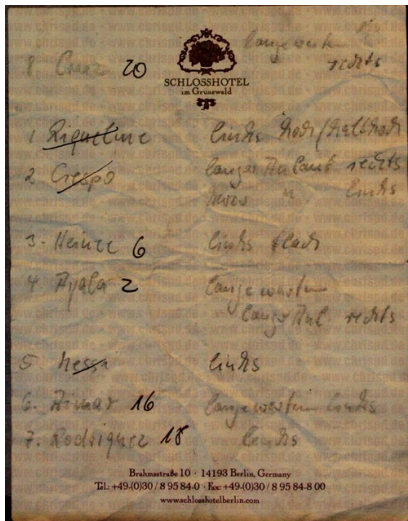 langewarten
8. Cruz 20 rechts
SCHLOSSHOTEL
im Grunewald
1 Riquelme links hoch/halbhoch
2 Crespo langer Anlauf rechts
links
3. Heinze 6 links flach
4 Ayala 2 lange warten
lange Anl. rechts
5 Messi links
6. Aimar 16 lange warten links
7. Rodriguez 18 links
Brahmsstraße 10 · 14193 Berlin, Germany
Tel.: +49-(0)30 / 8 95 84-0 · Fax: +49-(0)30 / 8 95 84-8 00
www.schlosshotelberlin.com